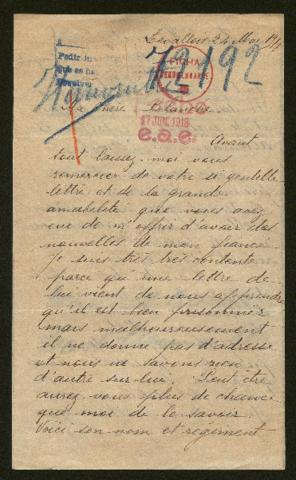 Levallois 24 Mai 191
A
Pedir in
72192
FICHA
17 JUN. 1918
e.a.e.
Ma chère Blanche
Avant
tout laissez moi vous
remercier de votre si gentille
lettre et de la grande
amabilité que vous avez
eue de m'offrir d'avoir des
nouvelles de mon fiancé
Je suis très très contente
parce qu'une lettre de
lui vient de nous apprendre
qu'il est bien prisonnier
mais malheureusement
il ne donne pas d'adresse
et nous ne savons rien
d'autre sur lui. Peut être
aurez vous plus de chance
que moi de le savoir.
Voici son nom et régiment